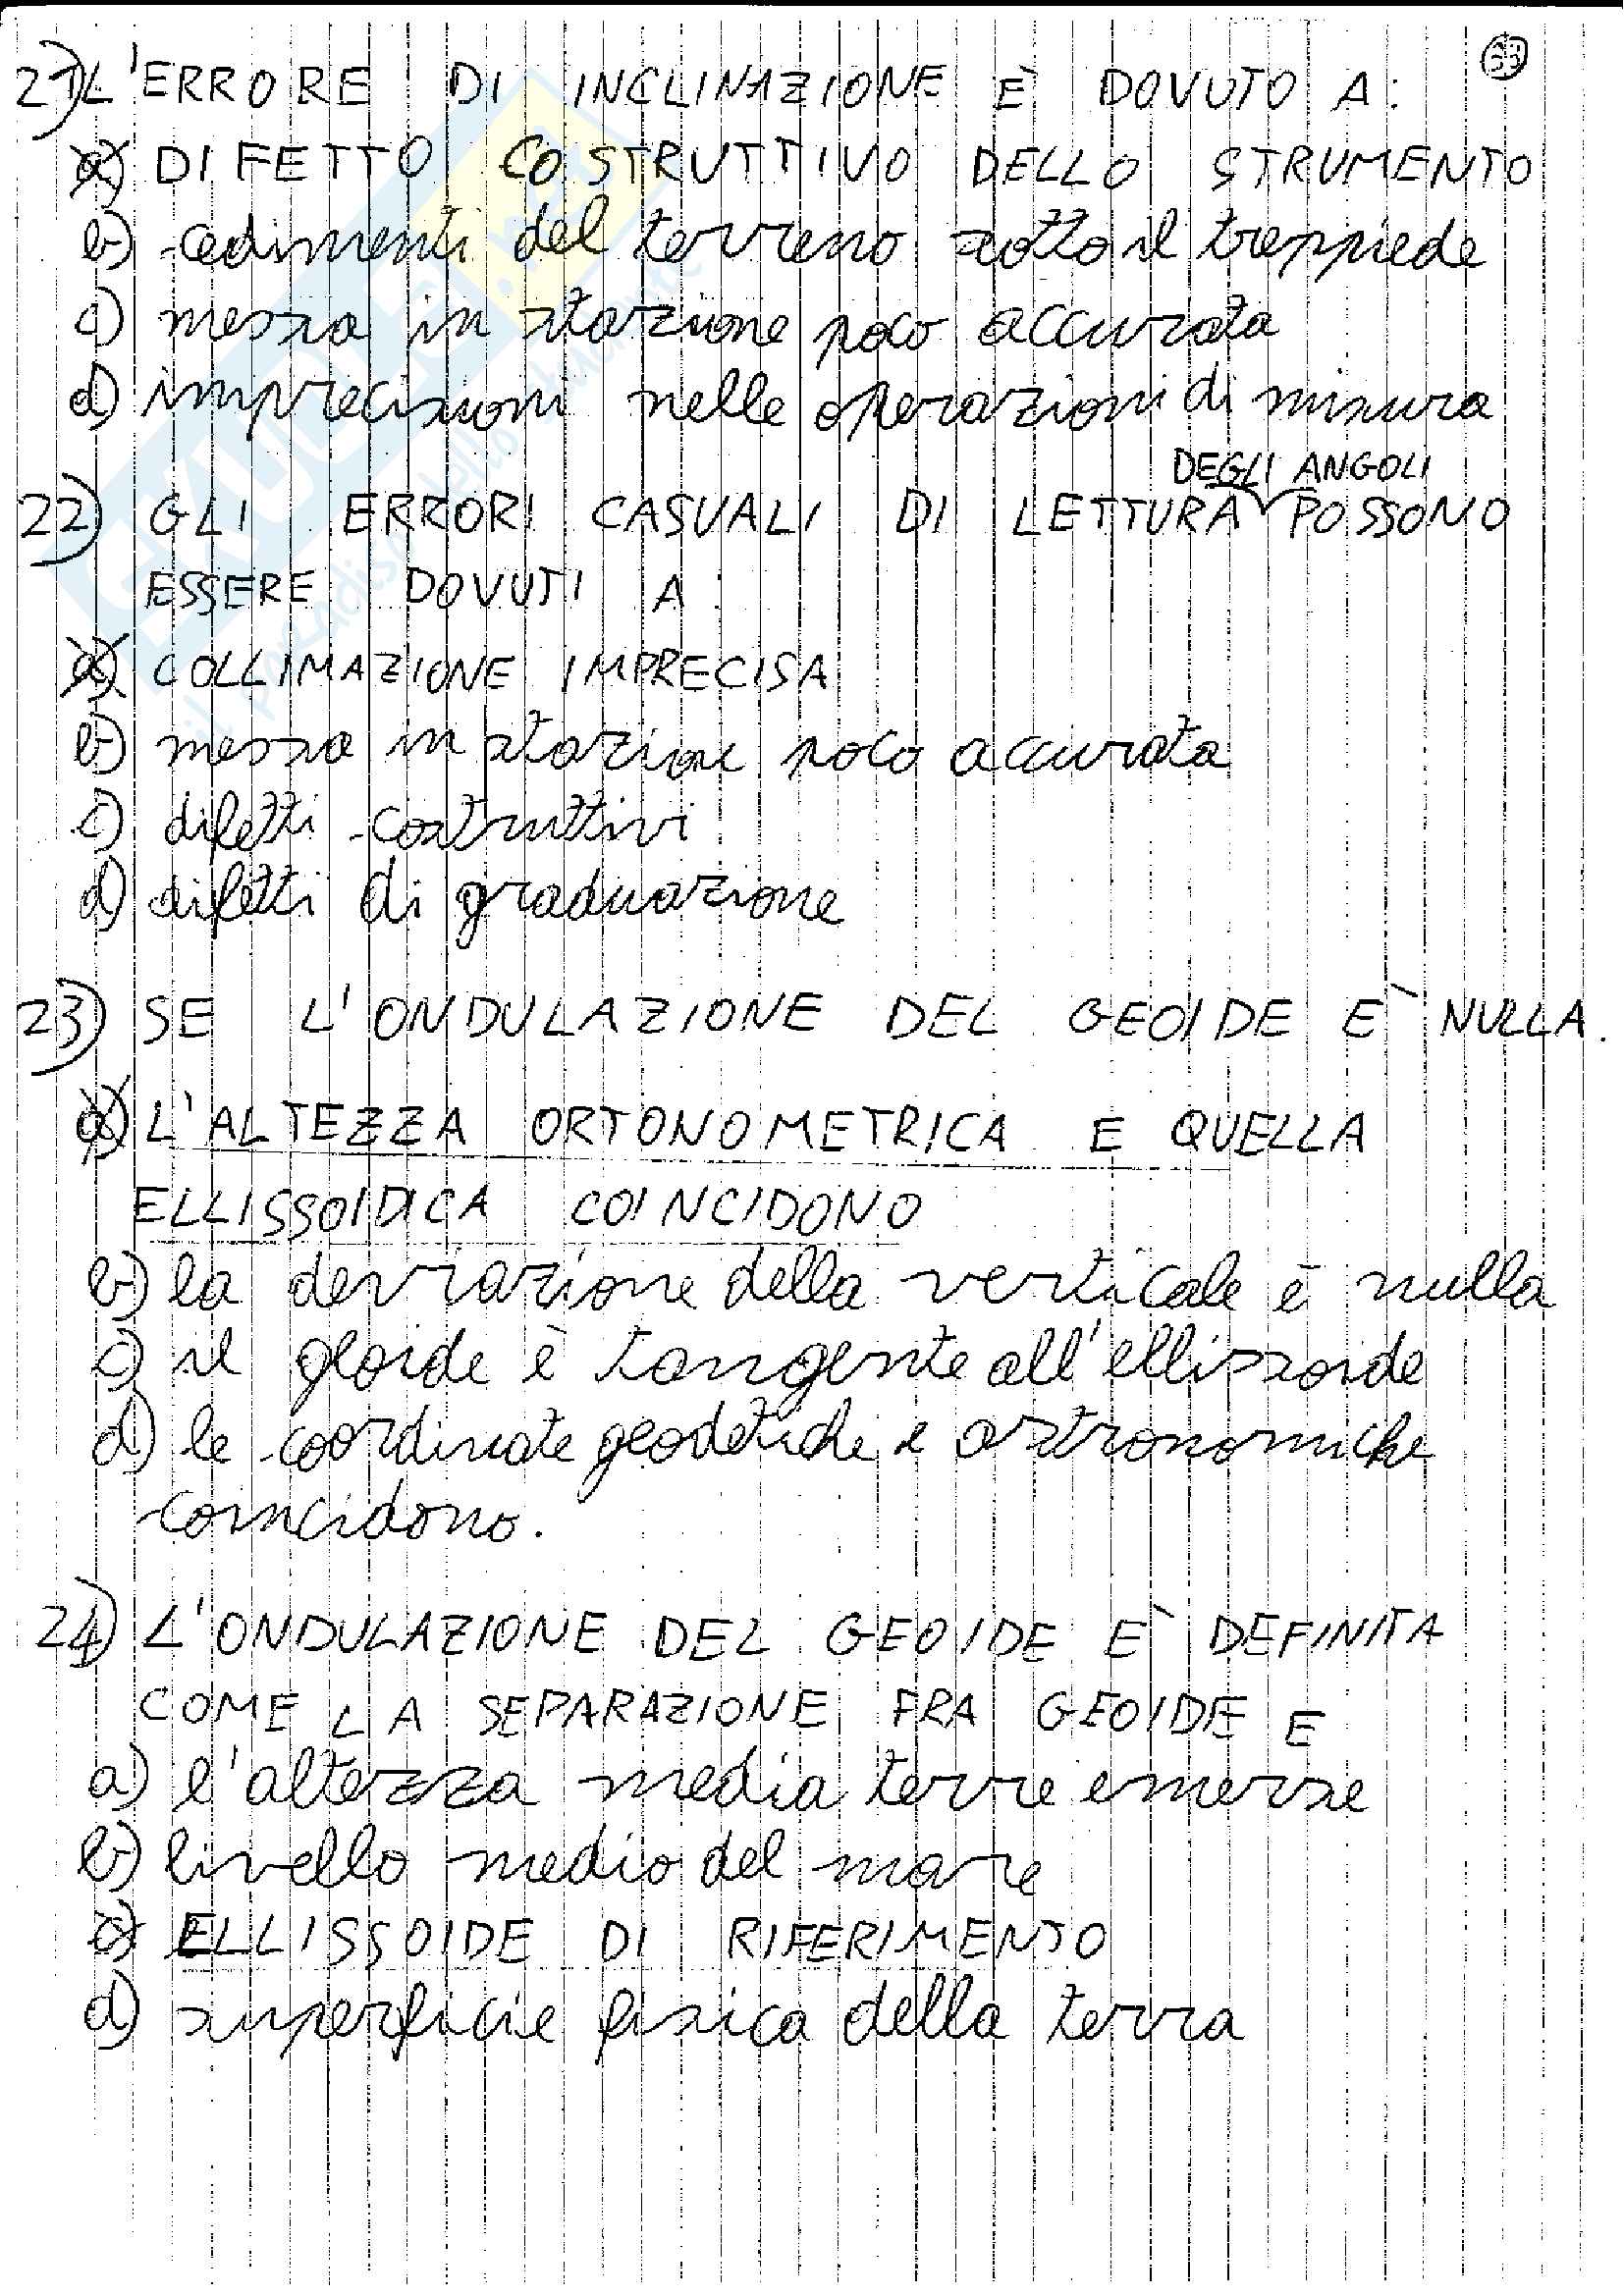 33
21) L'ERRORE DI INCLINAZIONE È DOVUTO A:
a) DIFETTO COSTRUTTIVO DELLO STRUMENTO
b) cedimenti del terreno sotto il treppiede
c) messa in stazione poco accurata
d) imprecisioni nelle operazioni di misura
DEGLI ANGOLI
22) GLI ERRORI CASUALI DI LETTURA POSSONO
ESSERE DOVUTI A:
a) COLLIMAZIONE IMPRECISA
b) messa in stazione poco accurata
c) difetti costruttivi
d) difetti di graduazione
23) SE L'ONDULAZIONE DEL GEOIDE E` NULLA.
a) L'ALTEZZA ORTONOMETRICA E QUELLA
ELLISSOIDICA COINCIDONO
b) la deviazione della verticale è nulla
c) il geoide è tangente all'ellissoide
d) le coordinate geodetiche e astronomiche
coincidono.
24) L'ONDULAZIONE DEL GEOIDE E` DEFINITA
COME LA SEPARAZIONE FRA GEOIDE E
a) l'altezza media terre emerse
b) livello medio del mare
c) ELLISSOIDE DI RIFERIMENTO
d) superficie fisica della terra